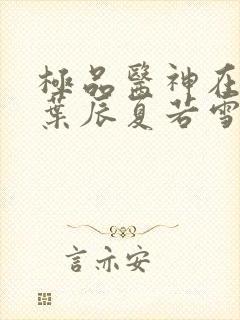 極品醫神在
葉辰夏若雪
言亦安